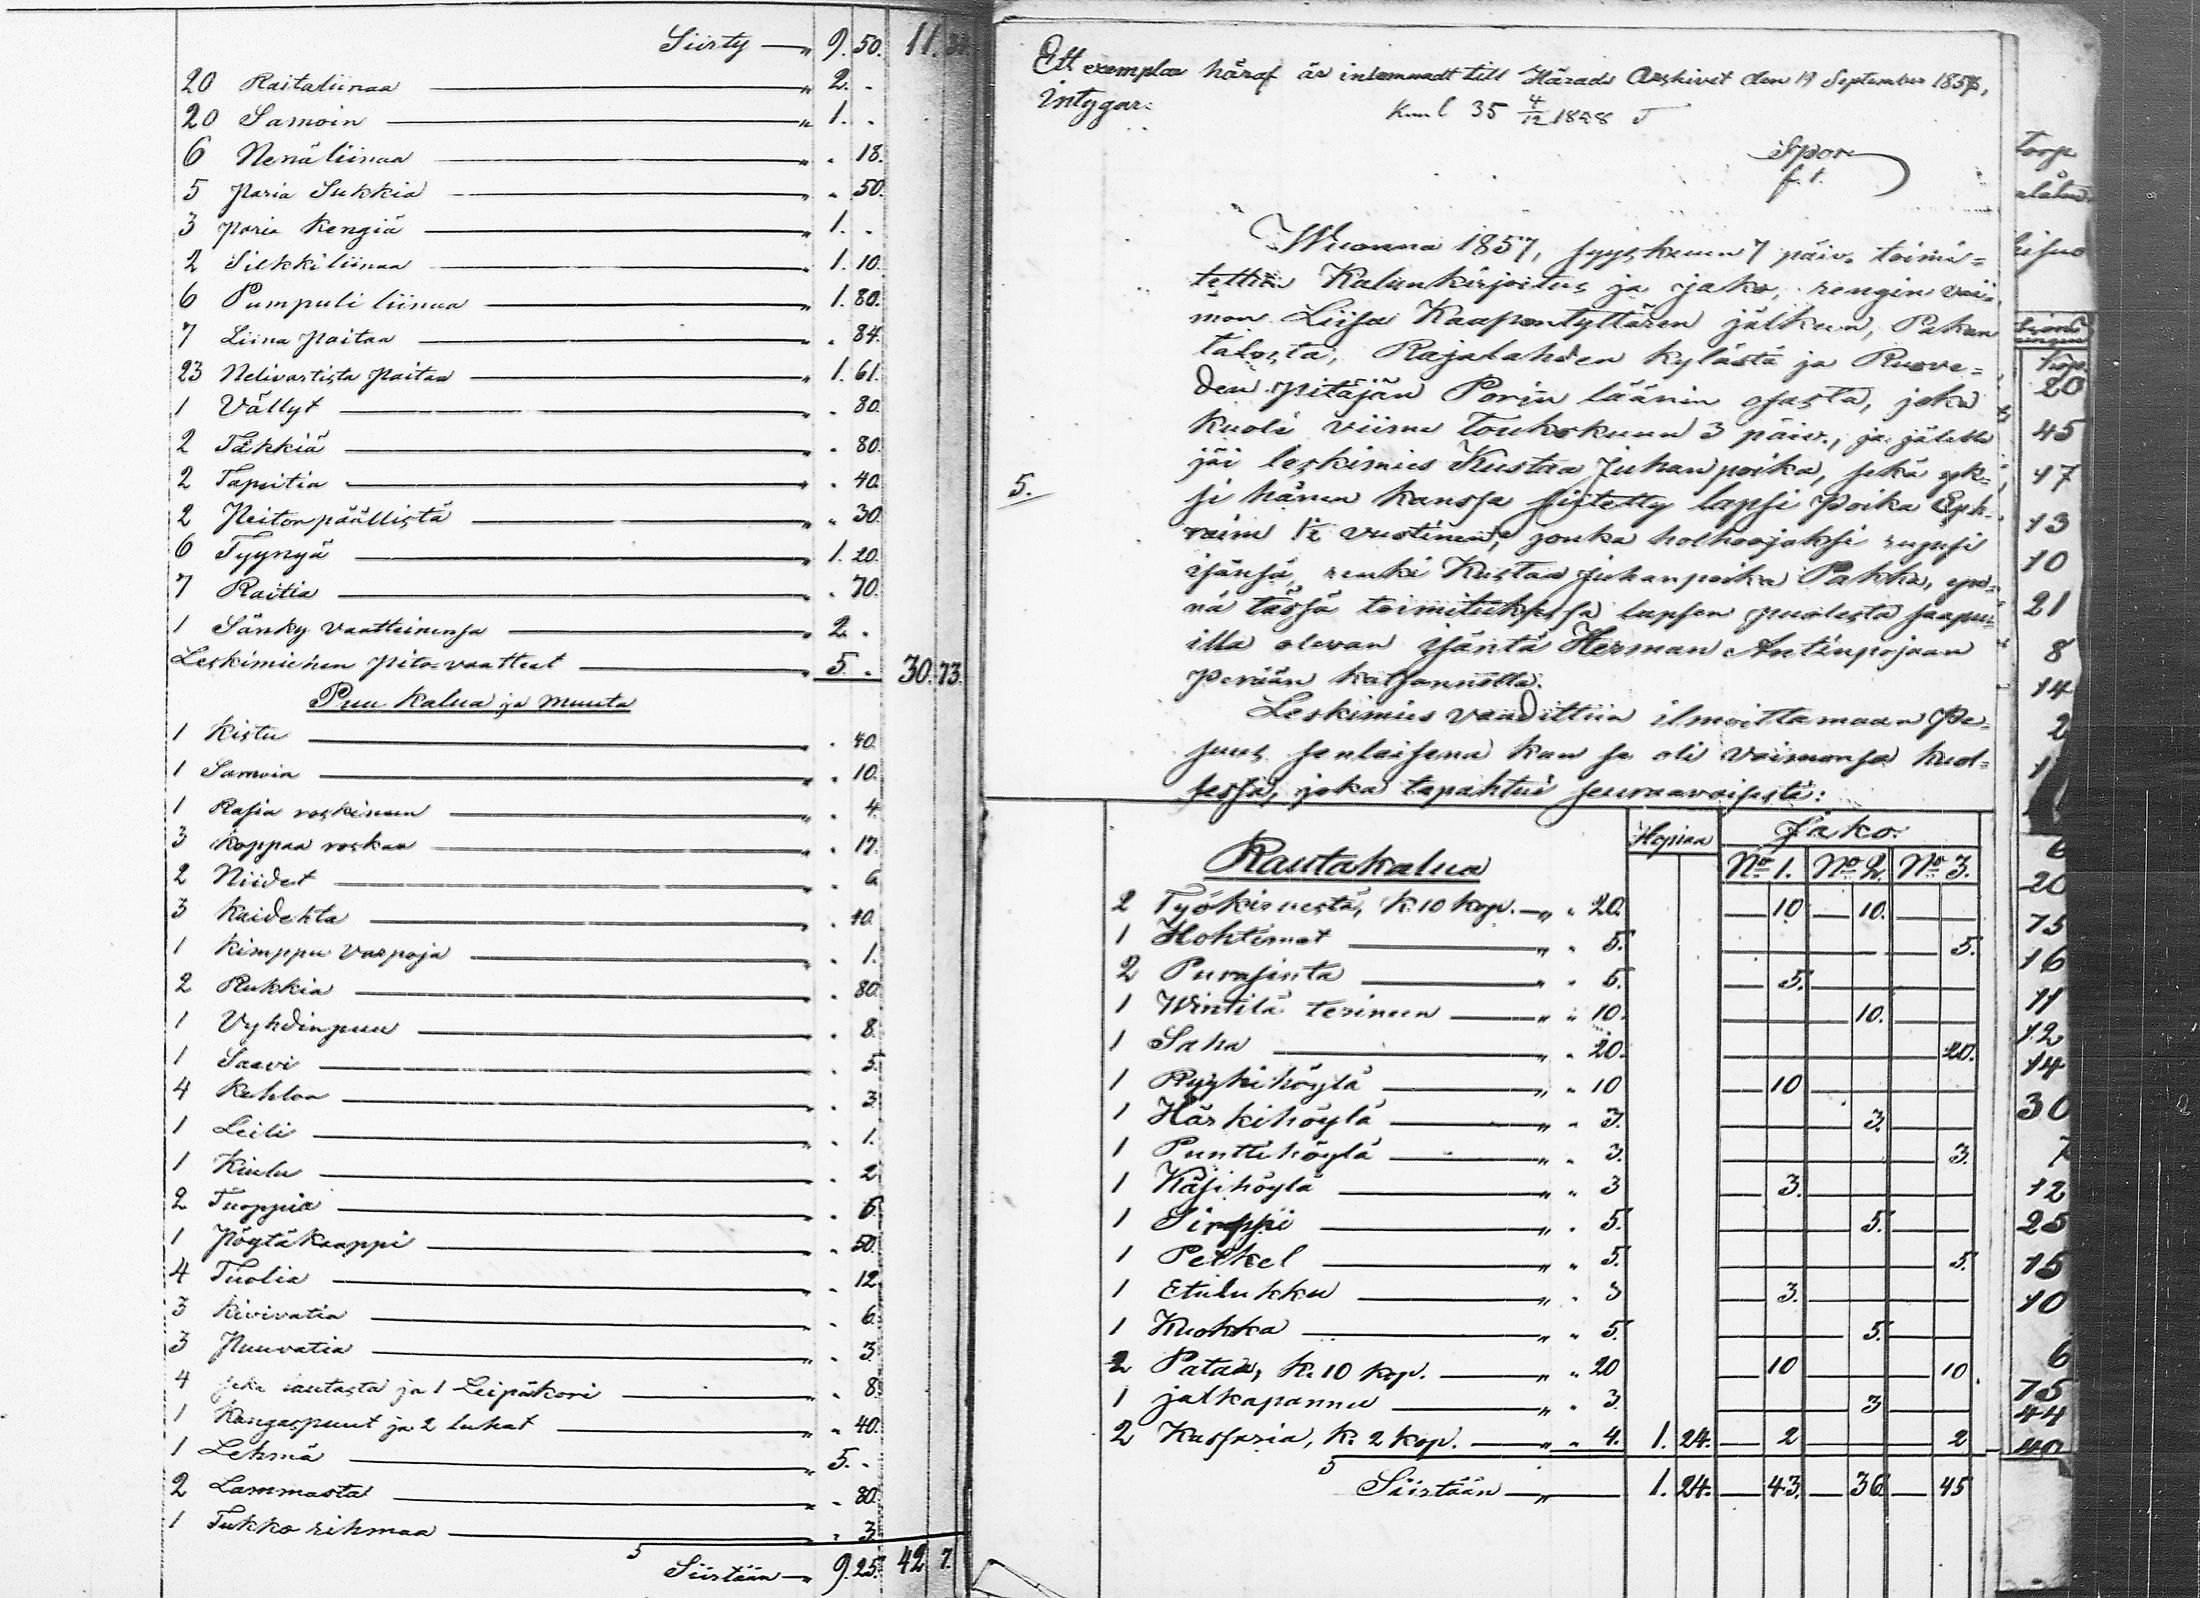 Siirty — " 9. 50. 11.
20 Raitaliinaa " 2. -
20 Samoin " 1. -
6 Nenäliinaa " - 18.
5 paria Sukkia " - 50.
3 paria Kengiä " 1. -
2 Silkkiliinaa " 1. 10.
6 Pumpuli liinaa " 1. 80.
7 Liina paitaa " - 84.
23 Nelivartista paitaa " 1. 61.
1 Vällyt " - 80.
2 Täkkiä " - 80.
2 Tapeitia " - 40.
2 Peitonpäällistä " - 30.
6 Tyynyä " 1. 20.
7 Raitia " - 70.
1 Sänky vaatteinensa " 2. -
Leskimiehen pito-vaatteet " 5. - 30. 73.
Puu kalua ja muuta
1 Kistu " - 40.
1 Samoin " - 10.
1 Rasia roskineen " - 4.
3 Koppaa roskaa " - 17.
2 Niidet " - 6.
3 Kaidehta " - 10.
1 Kimppu Varpoja " - 1.
2 Rukkia " - 80.
1 Vyhdinpuu " - 8.
1 Saavi " - 5.
4 Kehloa " - 3.
1 Leili " - 1.
1 Kiulu " - 2.
2 Tuoppia " - 6.
1 Pöytäkaappi " - 50.
4 Tuolia " - 12.
3 Kivivatia " - 6.
3 Puuvatia " - 3.
4 ja 1 Leipäkori " - 8.
1 Kangaspuut ja 2 luhat " - 40.
1 Lehmä " 5. -
2 Lammasta " - 80.
1 Tukko rihmaa " - 3.
Siirtään " 9. 25. 42 7.
Ett exemplar häraf är inlemnadt till Härads Arkivet den 19 September 1857,
Intygar:
35 4/12 1858
Spore
f. t.
Wuonna 1857, syyskuun 7 päiv. toimi=
tettin Kalunkirjoitus ja jako, rengin vai=
mon Liisa Kaapontyttären jälkeen, Pakan
talosta, Rajalahden kylästä ja Ruove=
den pitäjän Porin läänin osasta, joka
kuoli viime Toukokuun 3 päiv., ja jälelle
jäi leskimies Kustaa Juhanpoika, sekä yk=
5.
si hänen kanssa siitetty lapsi poika Eph=
raim 1/2 vuotinen, jonka holhoojaksi rupesi
isänsä, renki Kustaa Juhanpoika Pakka, yn=
nä tässä toimituksessa lapsen puolesta saapu=
illa olevan isäntä Herman Antinpojaan
perään katsannolla.
Leskimies vaadittiin ilmoittamaan Pe=
suus senlaisena kun se oli vaimonsa kuol=
lessa, joka tapahtui seuraavaisesti:
Rautakalua Hopiaa Jako.
No 1. No 2. No 3.
2 Työkirvestä, K. 10 kop. " - 20. 10 10.
1 Hohtimet " - 5. 5.
2 Purasinta " - 5. 5.
1 Wintilä terineen " - 10. 10.
1 Saha " - 20. 20.
1 Ryykihöylä " - 10 10
1 Härkihöylä " - 3. 3.
1 Punttihöylä " - 3. 3.
1 Käsihöylä " - 3 3.
1 Sirppi " - 5. 5.
1 Peitkel " - 5. 5.
1 Etulukku " - 3 3.
1 Kuokka " - 5. 5.
2 Pataa, K. 10 kop. " - 20 10 10
1 jalkapannu " - 3. 3
2 Kassaria, K. 2 kop. " - 4. 1. 24. 2 2
Siirtään " 1. 24. 43. 36 45
20
45
17
13
10
21
8
14
2
6
20
75
16
11
12
14
30
7
12
25
15
10
6
75
44
40